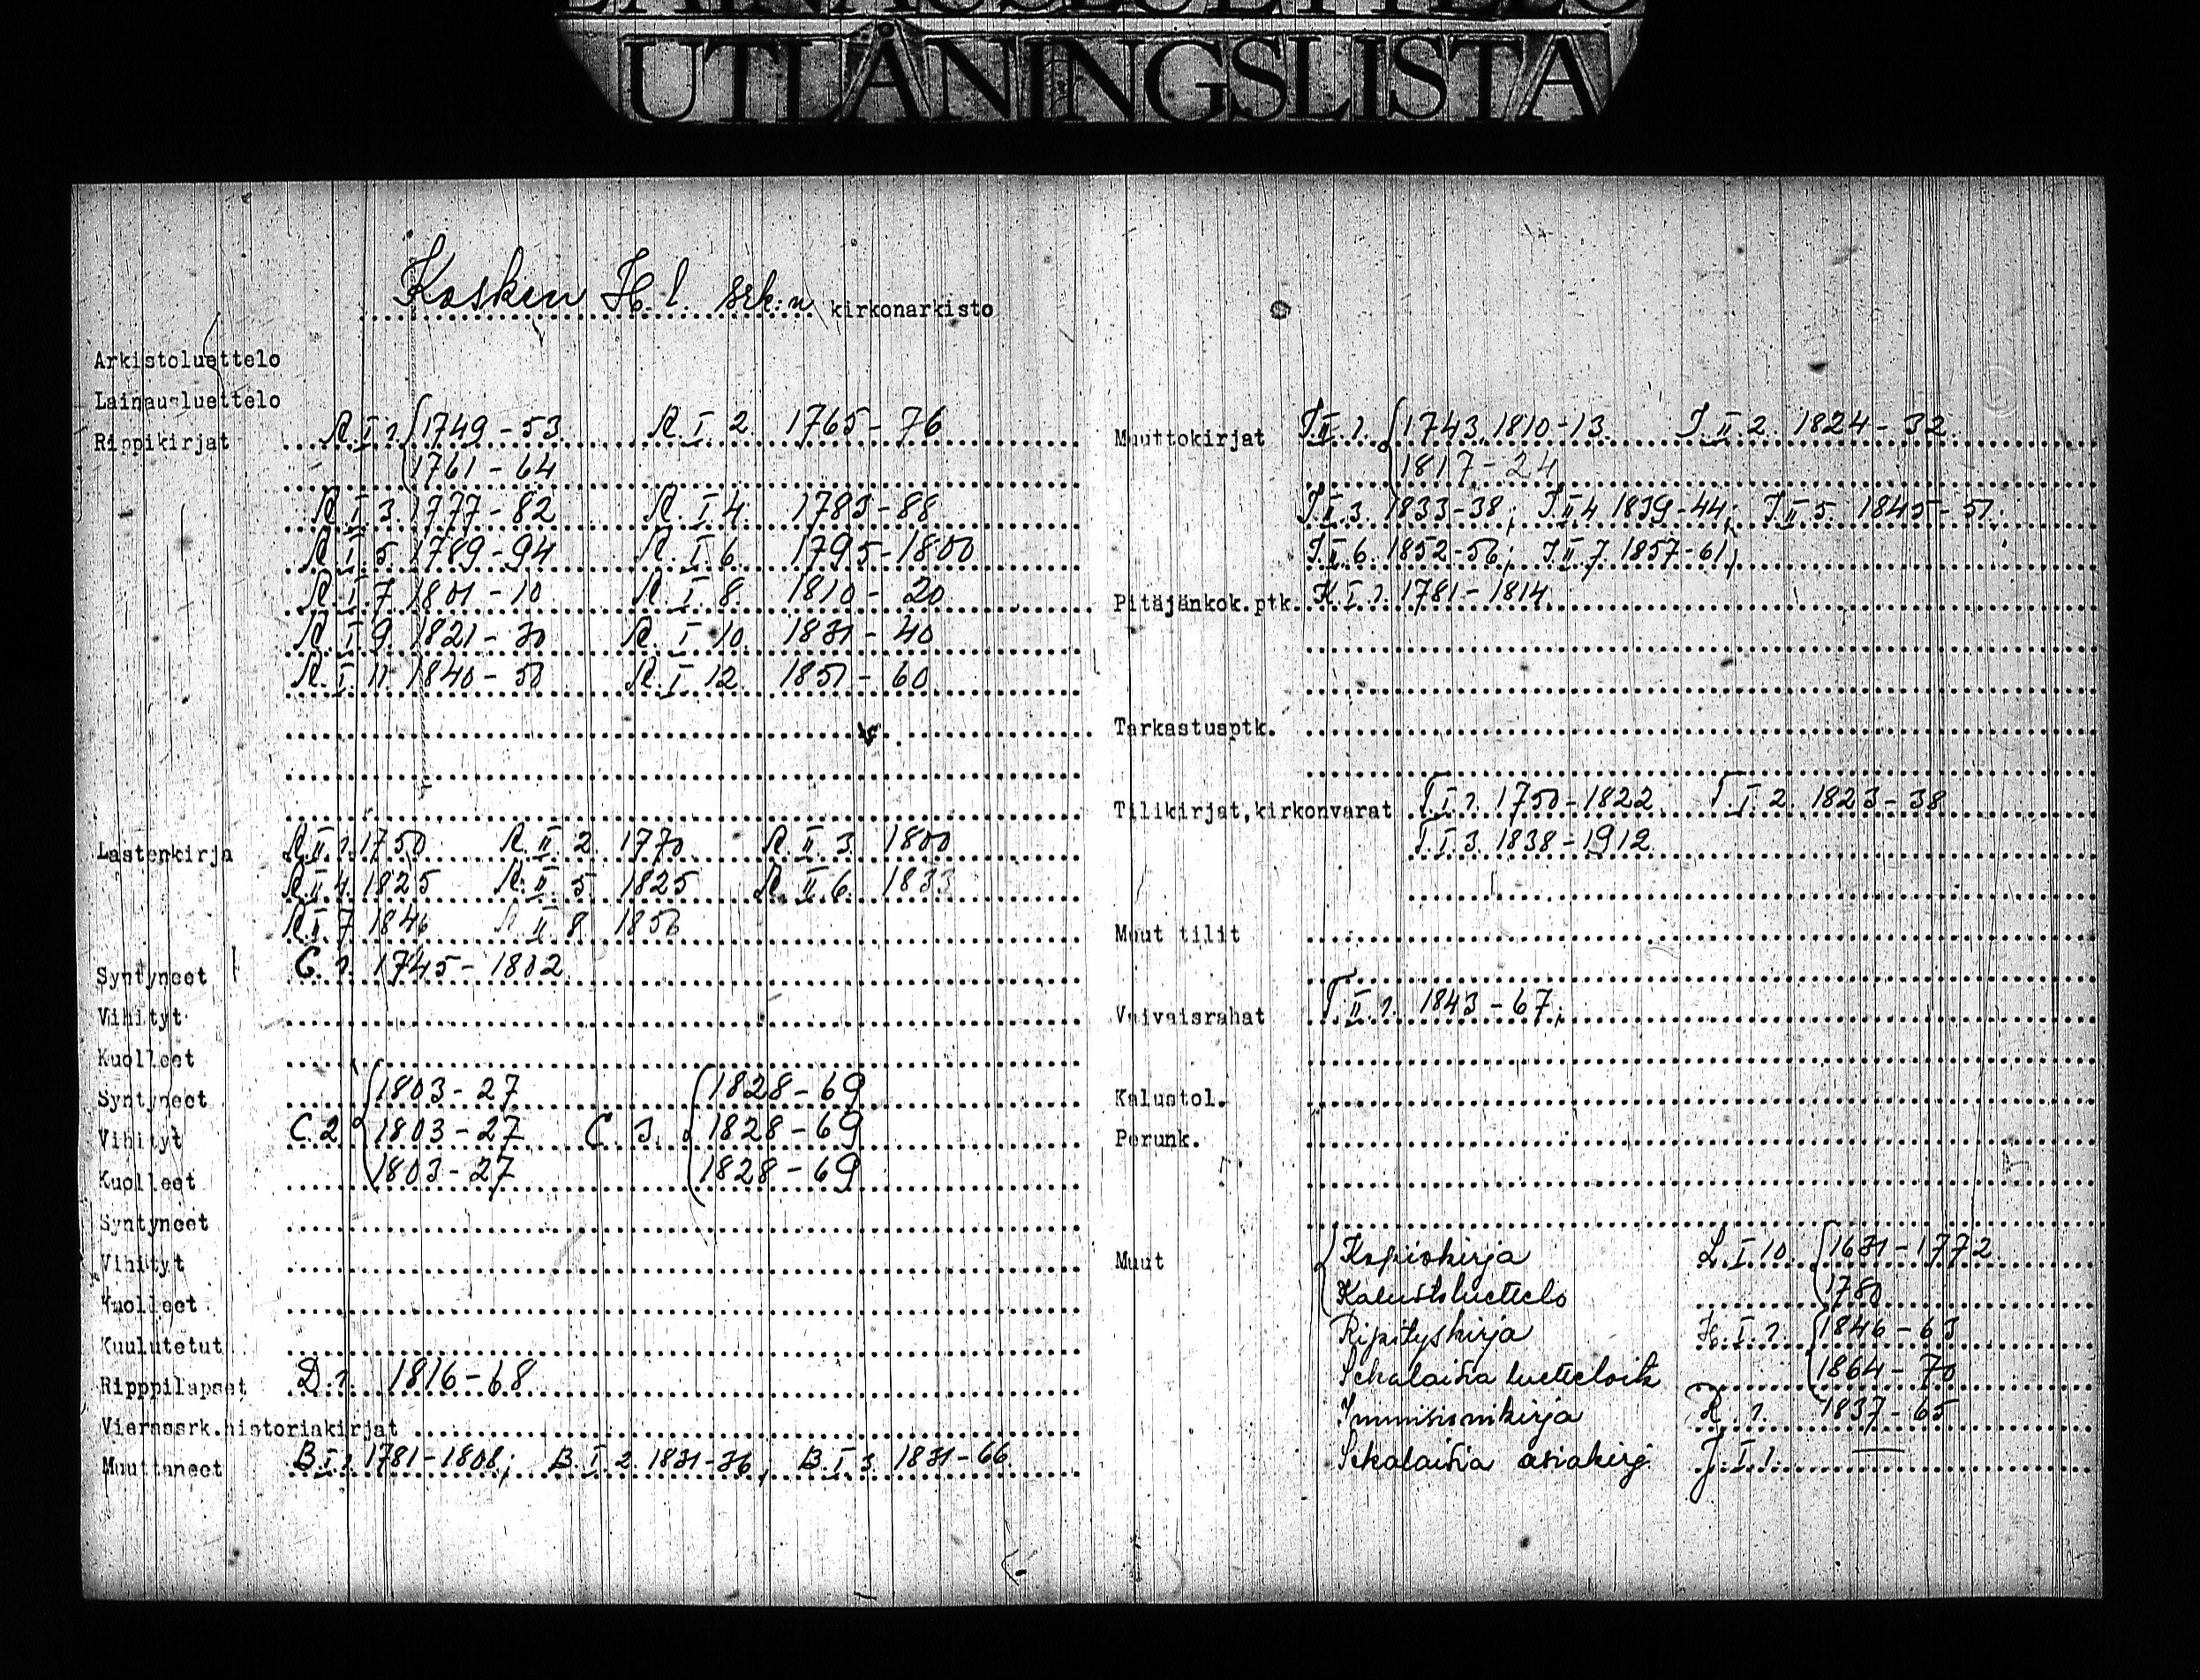 LAINAUSLUETTELO
UTLÅNINGSLISTA
Kosken H. l. srk:n kirkonarkisto
Arkistoluettelo
Lainausluettelo
Rippikirjat R. I. 1. 1749 - 53 R. I. 2. 1765 - 76
1761 - 64
R. I. 3. 1777 - 82 R. I. 4. 1783 - 88
R. I. 5. 1789 - 94 R. I. 6. 1795 - 1800
R. I. 7. 1801 - 10 R. I. 8. 1810 - 20
R. I. 9. 1821 - 30 R. I. 10. 1831 - 40
R. I. 11. 1840 - 50 R. I. 12. 1851 - 60
Lastenkirja R. II. 1. 1750 R. II. 2. 1770 R. II. 3. 1800
R. II. 4. 1825 R. II. 5. 1825 R. II. 6. 1833
R. II. 7. 1846 R. II. 8. 1856
Syntyneet C. 1. 1745 - 1802
Vihityt
Kuolleet
Syntyneet 1803 - 27 1828 - 69
Vihityt C. 2. 1803 - 27 C. 3. 1828 - 69
Kuolleet 1803 - 27 1828 - 69
Syntyneet
Vihityt
Kuolleet
Kuulutetut
Ripppilapset D. 1. 1816 - 68
Vierassrk.historiakirjat
Muuttaneet B. I. 1. 1781 - 1808; B. I. 2. 1831 - 36; B. I. 3. 1831 - 66
Muuttokirjat I. II. 1. 1743, 1810 - 13 I. II. 2. 1824 - 32
1817 - 24
I. II. 3. 1833 - 38; I. II. 4. 1839 - 44; I. II. 5. 1845 - 51;
I. II. 6. 1852 - 56; I. II. 7. 1857 - 61;
Pitäjänkok.ptk. K. I. 1. 1781 - 1814
Tarkastusptk.
Tilikirjat,kirkonvarat T. I. 1. 1750 - 1822 T. I. 2. 1823 - 38
T. I. 3. 1838 - 1912
Muut tilit
Vaivaisrahat T. II. 1. 1843 - 67;
Kalustol.
Perunk.
Muut Kopiokirja L. I. 10. 1631 - 1772
Kalustoluettelo 1780
Ripityskirja H. I. 1. 1846 - 63
Sekalaisia luetteloita 1864 - 70
Immisionikirja R. 1. 1837 - 65
Sekalaisia asiakirj. J. I. 1. —